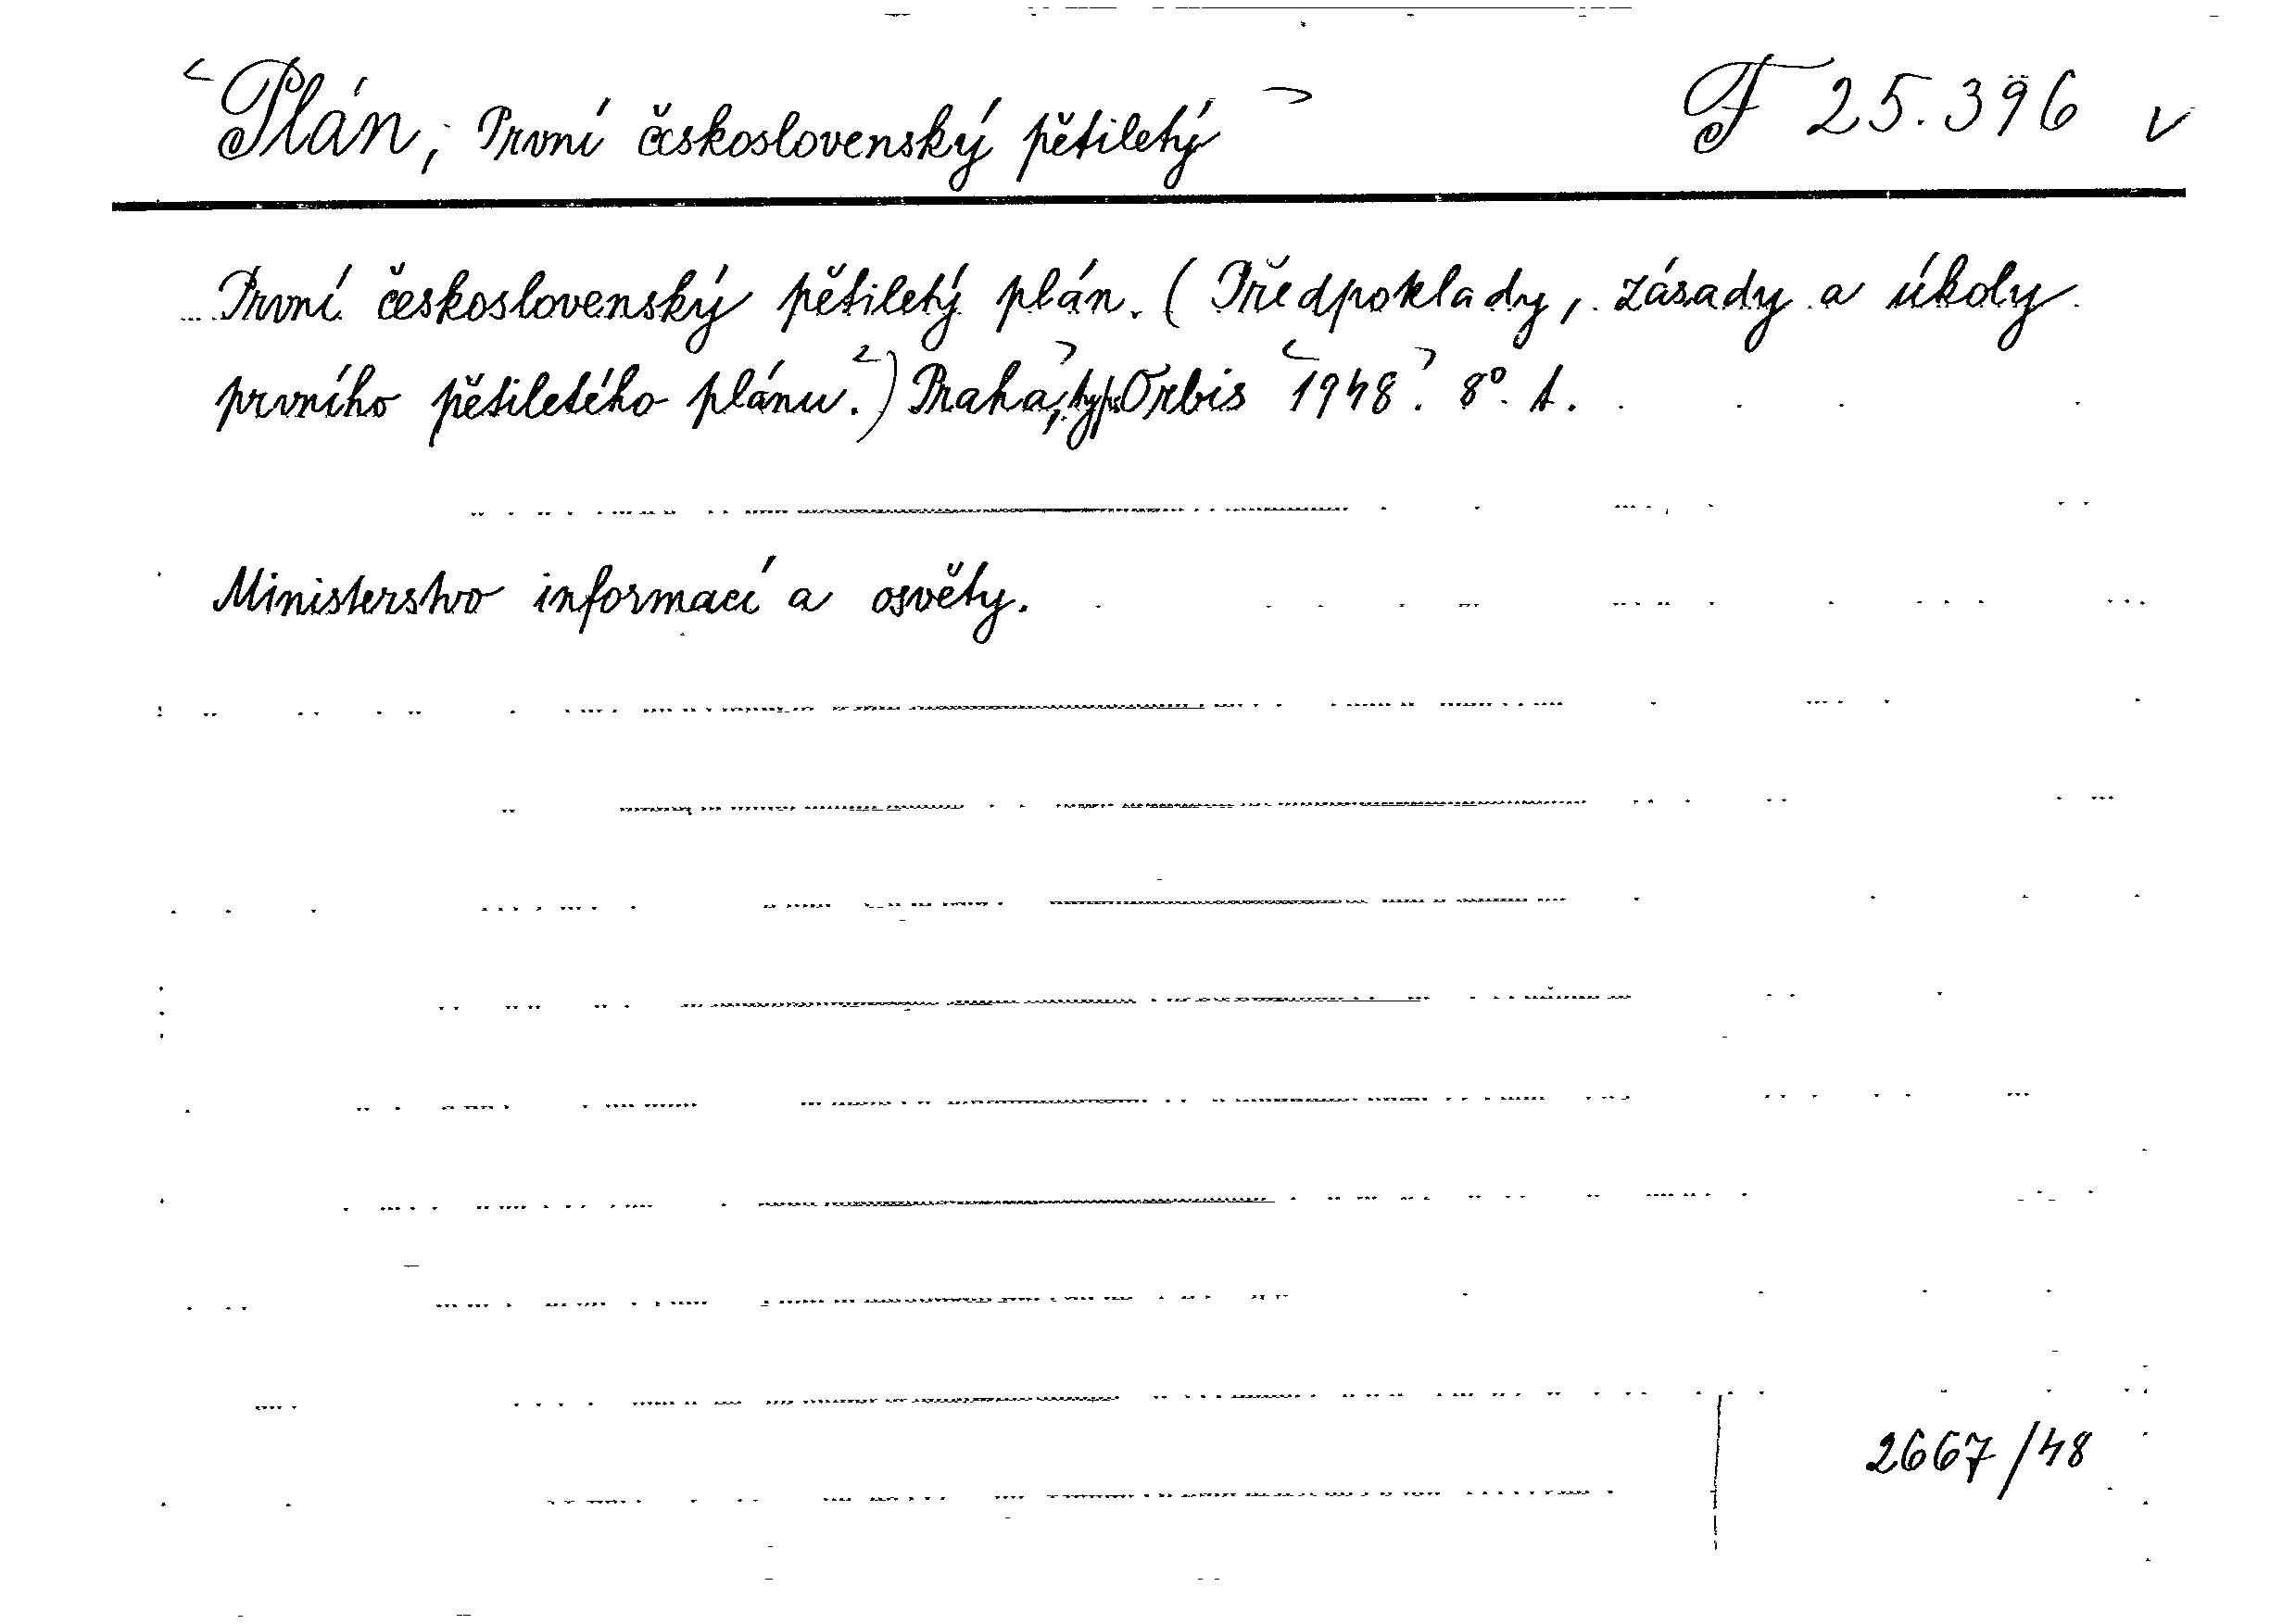 <Plán, První československý pětiletý> F 25.396 v
První československý pětiletý plán. (Předpoklady, zásady a úkoly
prvního pětiletého plánu.<) Praha,> typ. Orbis <1948>. 8°. 1.
Ministerstvo informací a osvěty.
2667/48